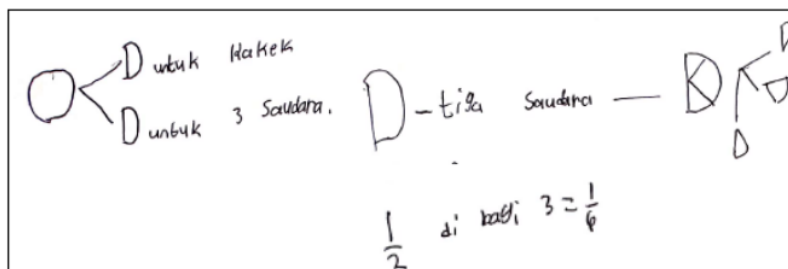 untuk Kakek
untuk 3 Saudara.
- tiga Saudara —
1/2 di bagi 3 = 1/6